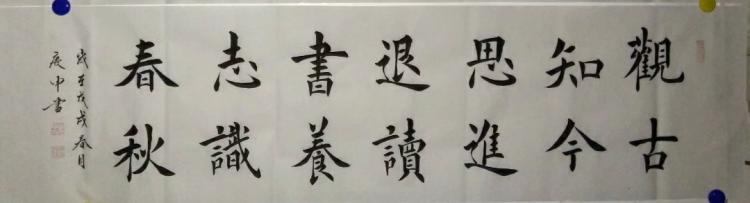 觀古
知今
思進
退讀
書養
志識
春秋
歲在戊戌春月
庚中書